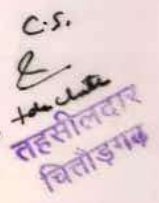 C.S.
&
तहसीलदार
चितौड़गढ़